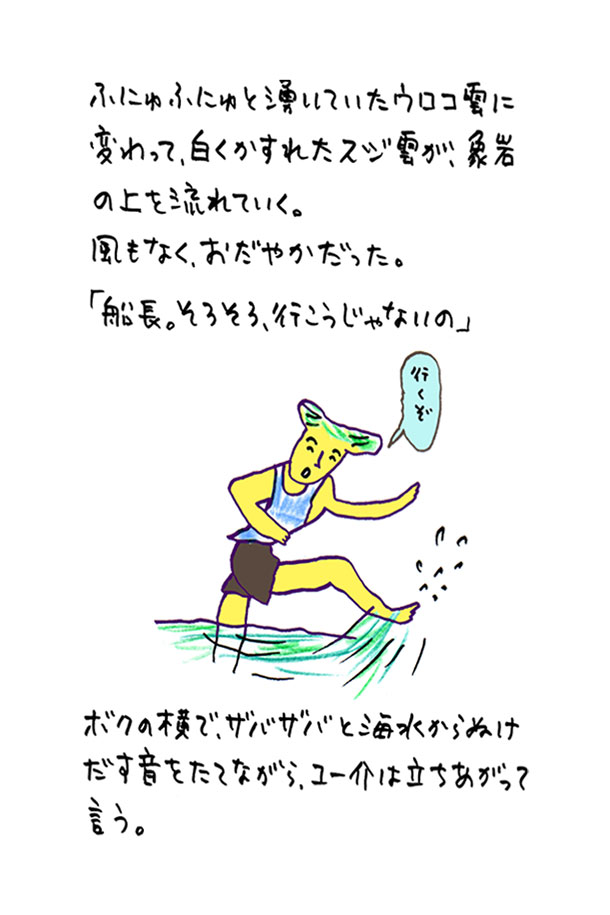 ふにゅふにゅと湧いていたウロコ雲に
変わって、白くかすれたスジ雲が、象岩
の上を流れていく。
風もなく、おだやかだった。
「船長。そろそろ、行こうじゃないの」
行くぞ
ボクの横で、ザバザバと海水からぬけ
だす音をたてながら、ユー介は立ちあがって
言う。